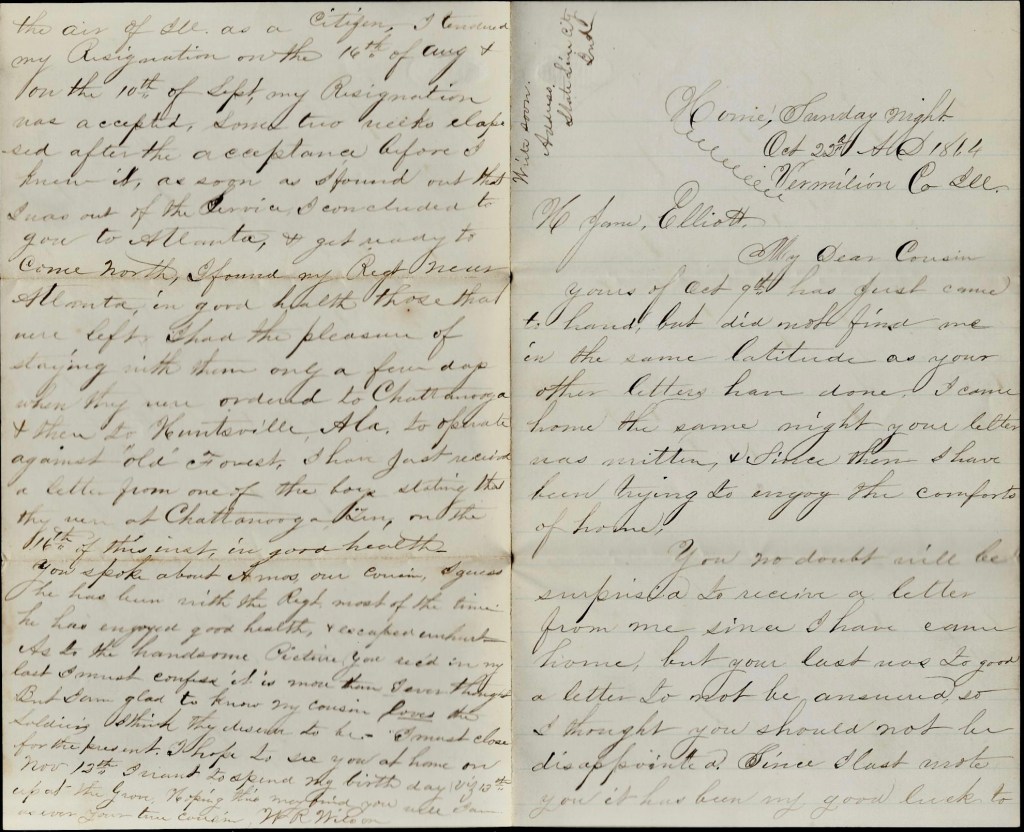 Home, Sunday night
Oct 22nd AD 1864
Vermilion Co Ill.
H Jane, Elliott.
My Dear Cousin
yours of Oct 9th has just came
to hand, but did not find me
in the same latitude as your
other letters have done. I came
home the same night your letter
was written, & Since then I have
been trying to engoy the comforts
of home.
You no doubt will be
surprised to receive a letter
from me since I have came
home, but your last was to good
a letter to not be answered, so
I thought you should not be
disappointed. Since I last wrote
you it has been my good luck to
Write soon.
Address
State Line City
Ind
the air of Ill. as a Citizen, I tendered
my Resignation on the 16th of Aug &
on the 10th of Sept, my Resignation
was accepted, some two weeks elap
sed after the acceptance before I
knew it, as soon as I found out that
I was out of the Service, I concluded to
go to Atlanta, & get ready to
come North, I found my Regt near
Atlanta, in good health those that
were left. I had the pleasure of
staying with them only a few days
when they were ordered to Chattanooga
& then to Huntsville, Ala. to operate
against "old" Forest, I have just received
a letter from one of the boys stating that
they were at Chattanooga Ten, on the
16th of this inst, in good health
You spoke about Amos, our cousin, I guess
he has been with the Regt most of the time
he has engoyed good health, & escaped unhurt
As to the handsome Picture you see'd in my
last I must confess it is more than I ever thought
But I am glad to know my cousin loves the
Soldiers I think they deserve to be. I must close
for the present. I hope to see you at home on
Nov 12th I want to spend my birth day (viz 13th
up at the Grove, Hoping this may find you well I am
as ever your true cousin W R Wilson